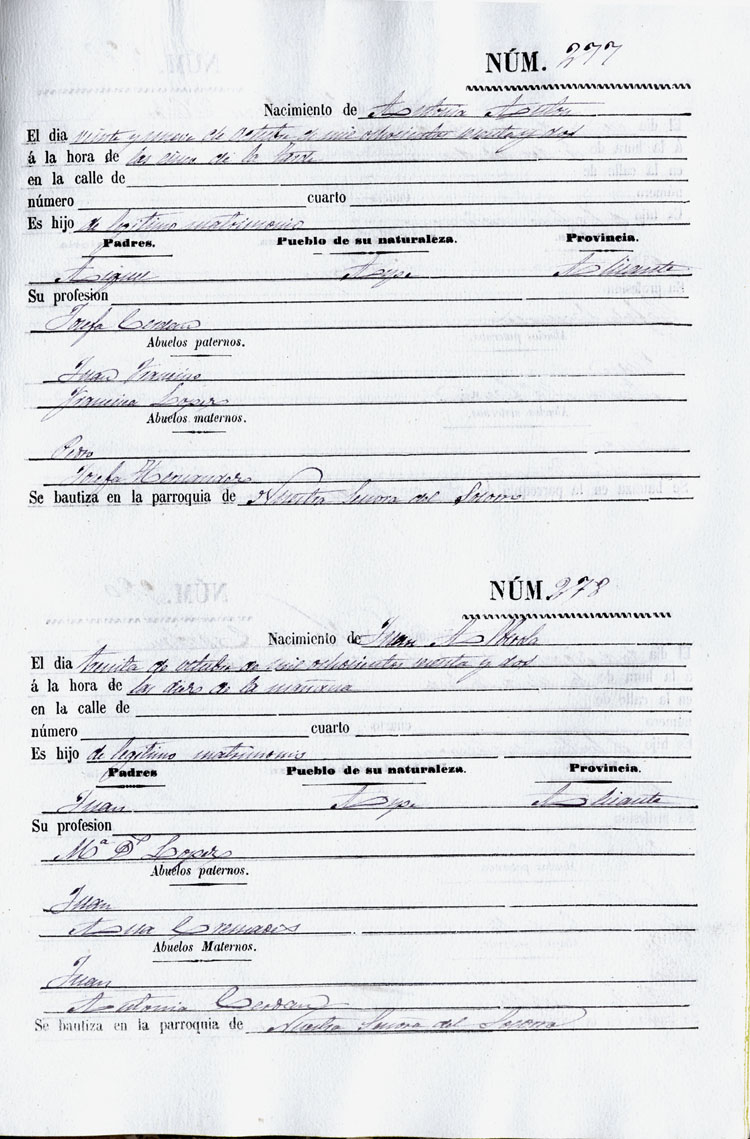 NÚM. 277
Nacimiento de Antonia
El dia veinte y nueve de octubre de mil ochocientos noventa y dos
á la hora de las cinco de la tarde
en la calle de
número cuarto
Es hijo de legitimo matrimonio
Padres. Pueblo de su naturaleza. Provincia.
Miguel Aspe Alicante
Su profesion
Josefa Cerdan
Abuelos paternos.
Juan
Francisca Lopez
Abuelos maternos.
Pedro
Josefa Hernandez
Se bautiza en la parroquia de Nuestra Señora del Socorro
NÚM. 278
Nacimiento de Juan
El dia treinta de octubre de mil ochocientos noventa y dos
á la hora de las diez de la mañana
en la calle de
número cuarto
Es hijo de legitimo matrimonio
Padres Pueblo de su naturaleza. Provincia.
Juan Aspe Alicante
Su profesion
Mª Dˢ Lopez
Abuelos paternos.
Juan
Ana Cremades
Abuelos Maternos.
Juan
Antonia Cerdan
Se bautiza en la parroquia de Nuestra Señora del Socorro